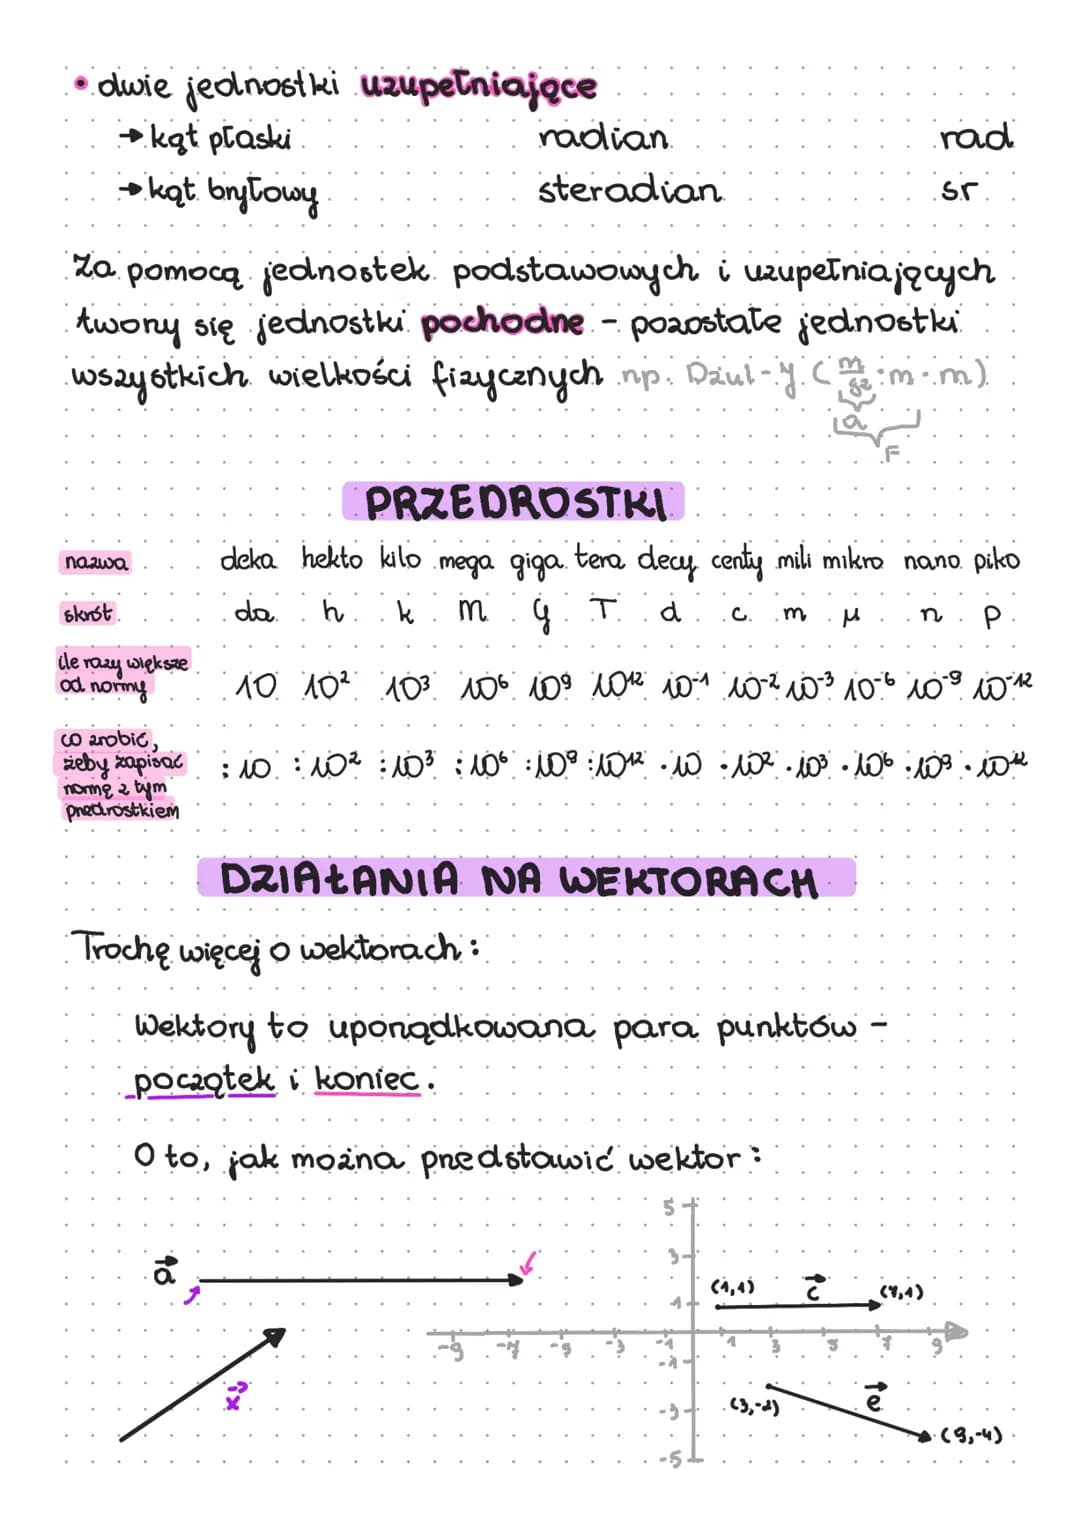 • dwie jednostki uzupełniające
→ kąt płaski radian rad
→ kąt bryłowy steradian sr
Za pomocą jednostek podstawowych i uzupełniających
tworzy się jednostki pochodne - pozostałe jednostki
wszystkich wielkości fizycznych np. Dżul-y (m/s² · m · m)
a
F
PRZEDROSTKI
nazwa deka hekto kilo mega giga tera decy centy mili mikro nano piko
skrót da h k M G T d c m μ n p
ile razy większe
od normy
10 10² 10³ 10⁶ 10⁹ 10¹² 10⁻¹ 10⁻² 10⁻³ 10⁻⁶ 10⁻⁹ 10⁻¹²
co zrobić,
żeby zapisać
normę z tym
przedrostkiem
:10 :10² :10³ :10⁶ :10⁹ :10¹² ·10 ·10² ·10³ ·10⁶ ·10⁹ ·10¹²
DZIAŁANIA NA WEKTORACH
Trochę więcej o wektorach:
Wektory to uporządkowana para punktów -
początek i koniec.
O to, jak można przedstawić wektor:
5
3
a⃗ (1,1) c⃗ (7,1)
1
-9 -7 -5 -3 -1 1 3 5 7 9
-1
x⃗ -3 (3,-2) e⃗
(9,-4)
-5